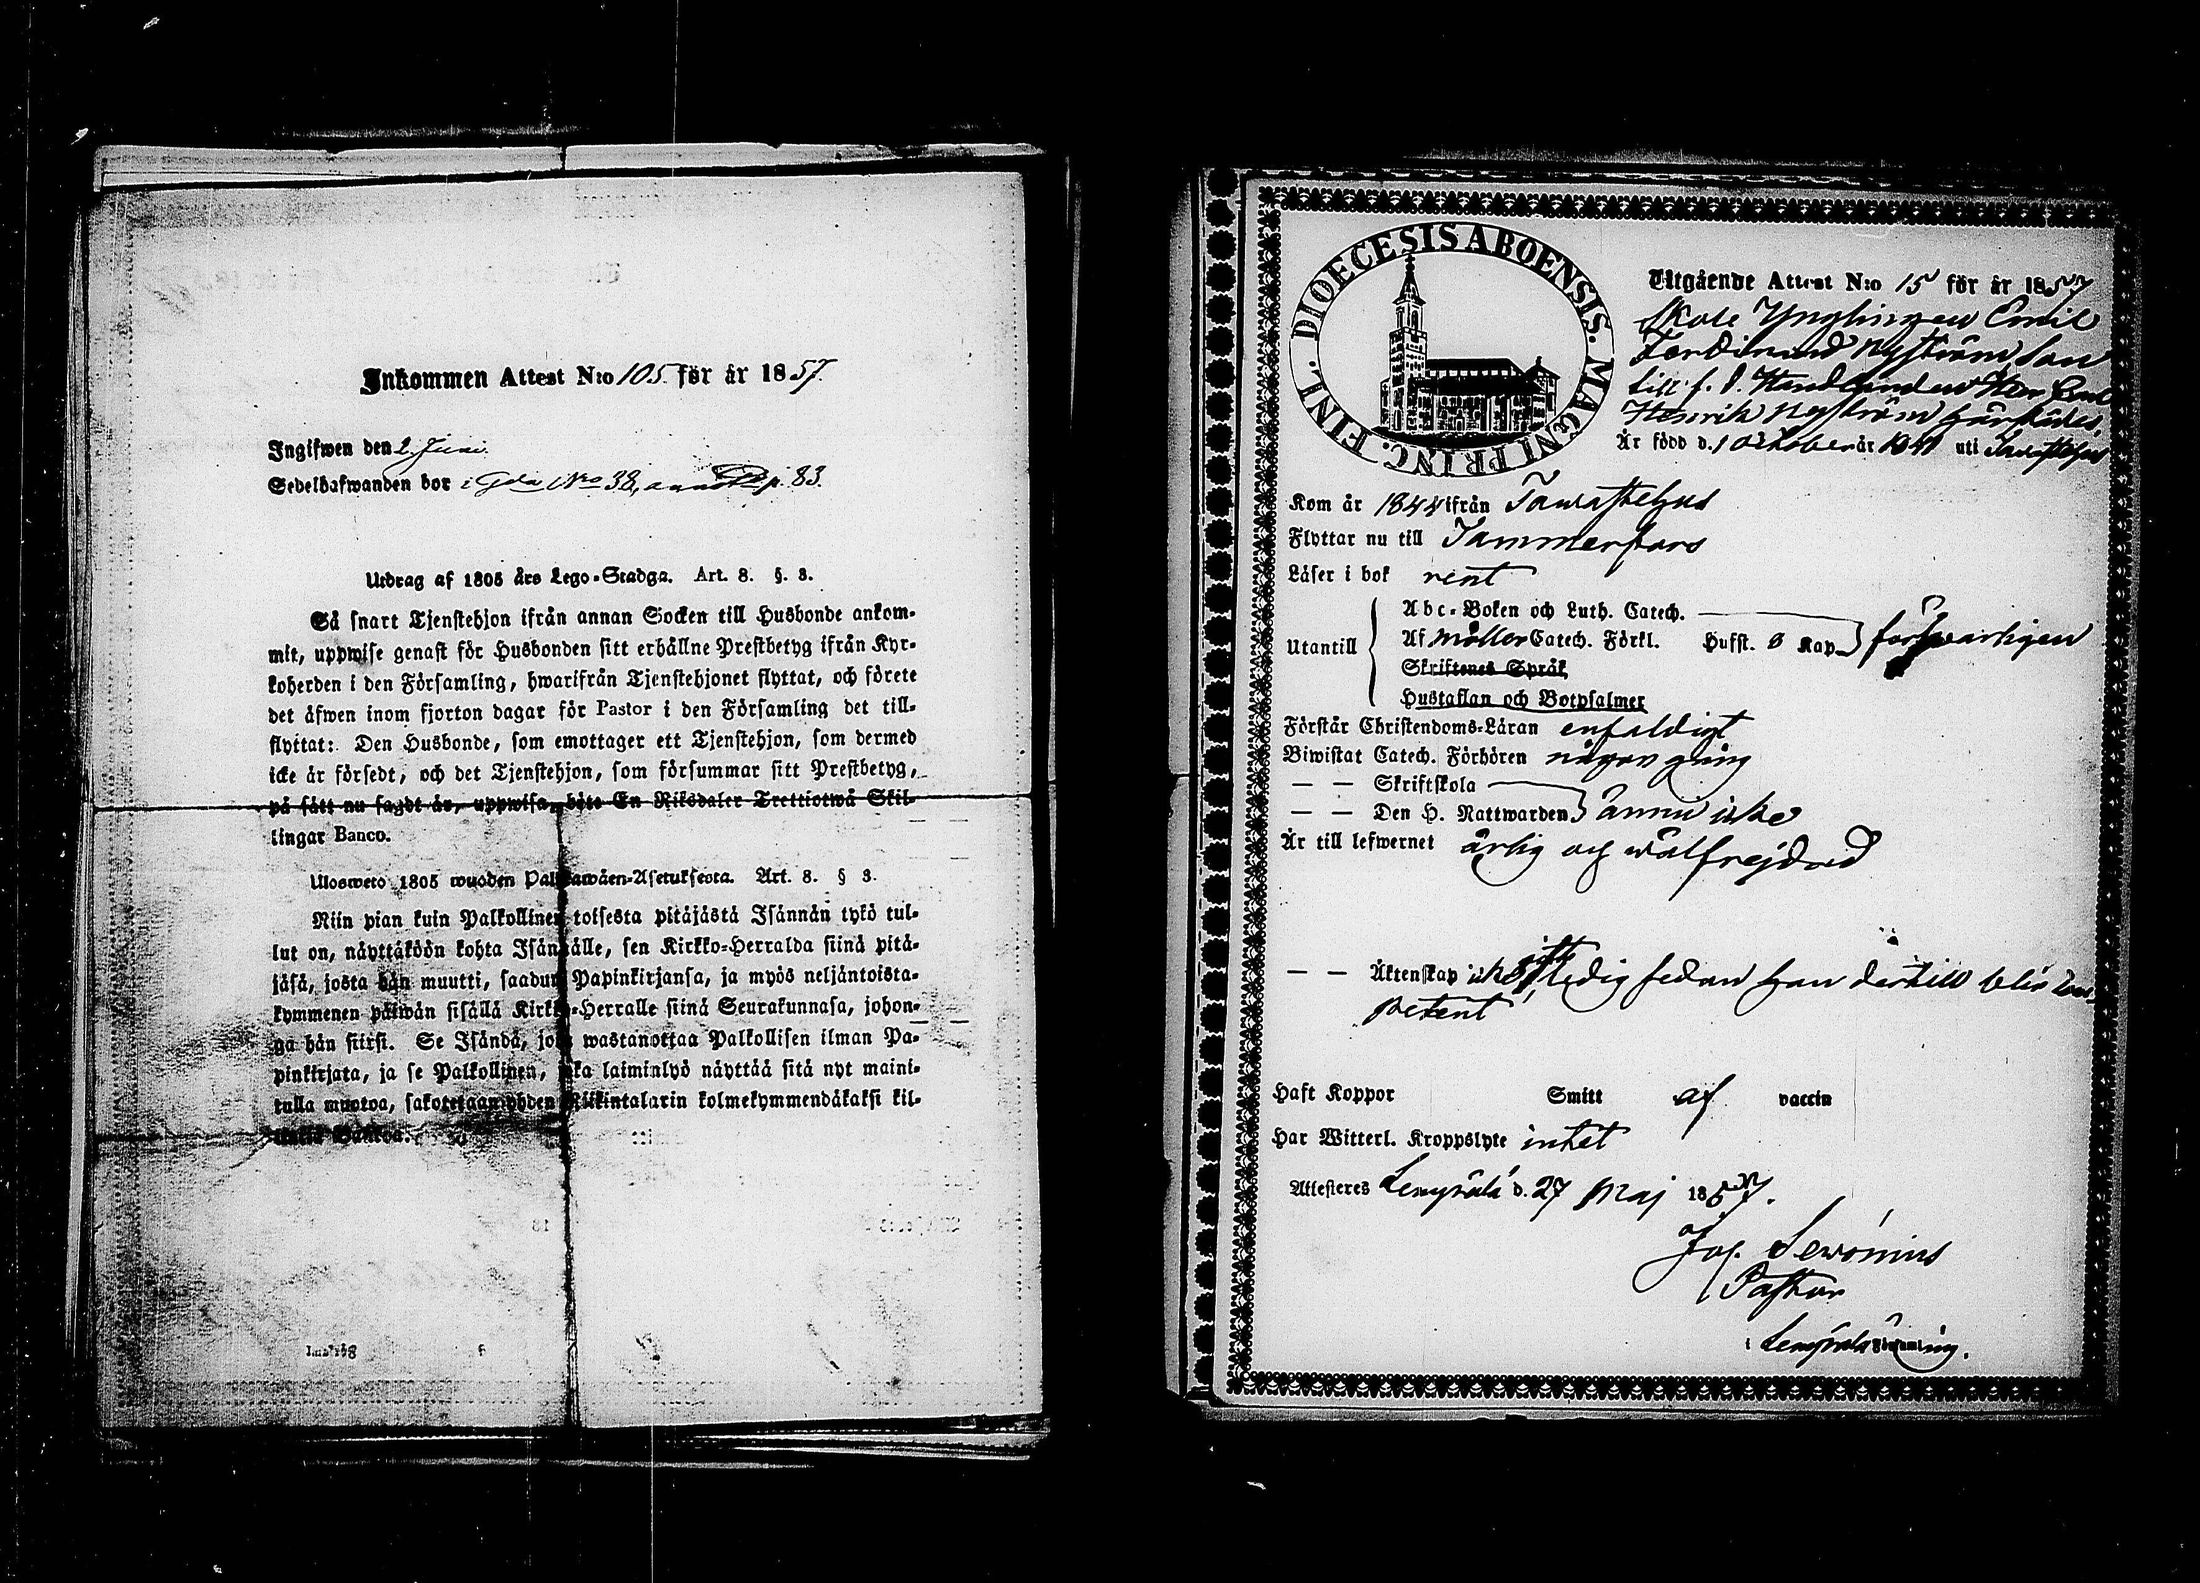 Inkommen Attest N:o 105. för år 1857.
Ingifwen den 2 Juni.
Sedelhafwanden bor i Gda No 38, p. 83.
Utdrag af 1805 års Lego-Stadga. Art. 8. §. 3.
Så snart Tjenstehjon ifrån annan Socken till Husbonde ankom-
mit, uppwise genast för Husbonden sitt erhållne Prestbetyg ifrån Kyr-
koherden i den Församling, hwarifrån Tjenstehjonet flyttat, och förete
det äfwen inom fjorton dagar för Pastor i den Församling det till-
flyttat: Den Husbonde, som emottager ett Tjenstehjon, som dermed
icke är försedt, och det Tjenstehjon, som försummar sitt Prestbetyg,
på sätt nu sagdt är, uppwisa, böte En Riksdaler Trettiotwå Skil-
lingar Banco.
Ulosweto 1805 wuoden Palkawäen-Asetuksesta. Art. 8. § 3.
Niin pian kuin Palkollinen toisesta pitäjästä Isännän tykö tul-
lut on, näyttäköön kohta Isännälle, sen Kirkko-Herralda siinä pitä-
jäsä, josta hän muutti, saadun Papinkirjansa, ja myös neljäntoista-
kymmenen päiwän sisällä Kirkko-Herralle siinä Seurakunnasa, johon-
ga hän siirsi. Se Isändä, joka wastanottaa Palkollisen ilman Pa-
pinkirjata, ja se Palkollinen, joka laiminlyö näyttää sitä nyt maini-
tulla muotoa, sakotetaan yhden Riikintalarin kolmekymmendäkaksi kil-
lingiä Bankoa.
DIOECESIS ABOENSIS. MAGNI PRINC. FINL.
Utgående Attest N:o 15 för år 1857
Skole Ynglingen Emil
Ferdinand Nyström Son
till f. d. Handlanden Herr Emil
Henrik Nyström härstädes.
Är född d. 1 Oktober år 1841 uti Tavastehus
Kom år 1844 ifrån Tawastehus
Flyttar nu till Tammerfors
Läser i bok rent
Utantill
Abc-Boken och Luth. Catech.
Af Möller Catech. Förkl. Hufst. 3 Kap. försvarligen
Skriftenes Språk
Hustaflan och Botpsalmer
Förstår Christendoms-Läran enfaldigt
Biwistat Catech. Förhören någon gång
— — Skriftskola
— — Den H. Nattwarden ännu icke
Är till lefwernet ärlig och wälfrejdad
— — Äktenskap ledig sedan han dertill blir kom-
petent
Haft Koppor Smitt af vaccin
Har Witterl. Kroppslyte intet
Attesteres Lempäälä d. 27 Maj 1857.
Joh. Serónius
Pastor
i Lempäälä Församling.